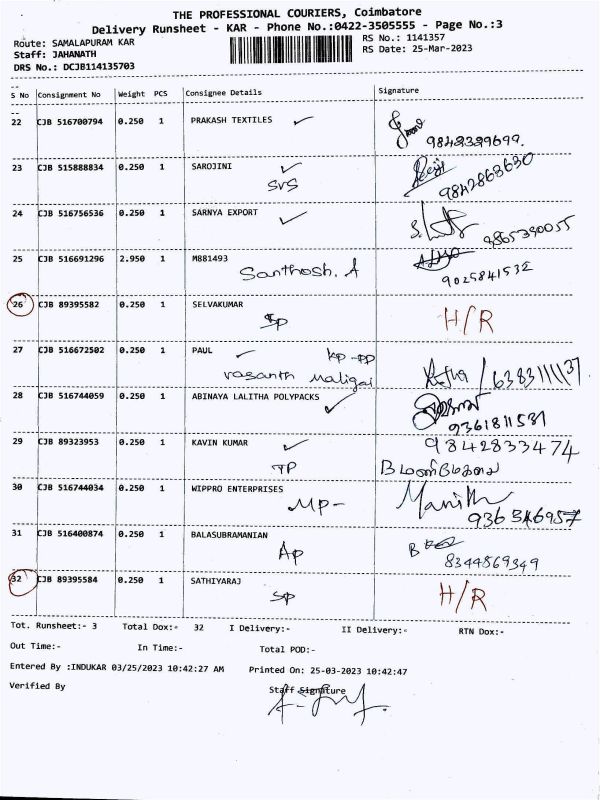 THE PROFESSIONAL COURIERS, Coimbatore
Delivery Runsheet - KAR - Phone No.:0422-3505555 - Page No.:3
Route: SAMALAPURAM KAR RS No.: 1141357
Staff: JAHANATH RS Date: 25-Mar-2023
DRS No.: DCJB114135703
S No Consignment No Weight PCS Consignee Details Signature
22 CJB 516700794 0.250 1 PRAKASH TEXTILES
9842329699.
23 CJB 515888834 0.250 1 SAROJINI
SVS 9842863630
24 CJB 516756536 0.250 1 SARNYA EXPORT
9865390055
25 CJB 516691296 2.950 1 M881493
Santhosh. A 9025841532
26 CJB 89395582 0.250 1 SELVAKUMAR
Sp H/R
27 CJB 516672502 0.250 1 PAUL
kp-pp
Vasanth Maligai
28 CJB 516744059 0.250 1 ABINAYA LALITHA POLYPACKS
9361811531
29 CJB 89323953 0.250 1 KAVIN KUMAR 9842833474
TP
30 CJB 516744034 0.250 1 WIPPRO ENTERPRISES
MP- Manith
31 CJB 516400874 0.250 1 BALASUBRAMANIAN
Ap 8344869349
32 CJB 89395584 0.250 1 SATHIYARAJ
Sp H/R
Tot. Runsheet:- 3 Total Dox:- 32 I Delivery:- II Delivery:- RTN Dox:-
Out Time:- In Time:- Total POD:-
Entered By :INDUKAR 03/25/2023 10:42:27 AM Printed On: 25-03-2023 10:42:47
Verified By Staff Signature